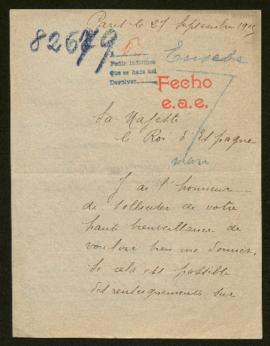 Paris le 27 Septembre 19
82679
Pedir informes
Que se hace así
Devolver
Fecho
e.a.e.
Sa Majesté
le Roi d'Espagne
J'ai l'honneur
de solliciter de votre
haute bienveillance de
vouloir bien me donner,
si cela est possible
des renseignements sur